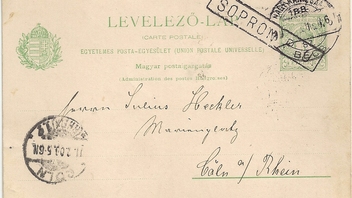 LEVELEZŐ-LAP
(CARTE POSTALE)
EGYETEMES POSTA-EGYESÜLET (UNION POSTALE UNIVERSELLE)
Magyar posta-igazgatás
(Administration des postes de Hongrie)
SOPRON
Herrn Julius Heckler
Marienplatz
Cöln a/ Rhein
CÖLN